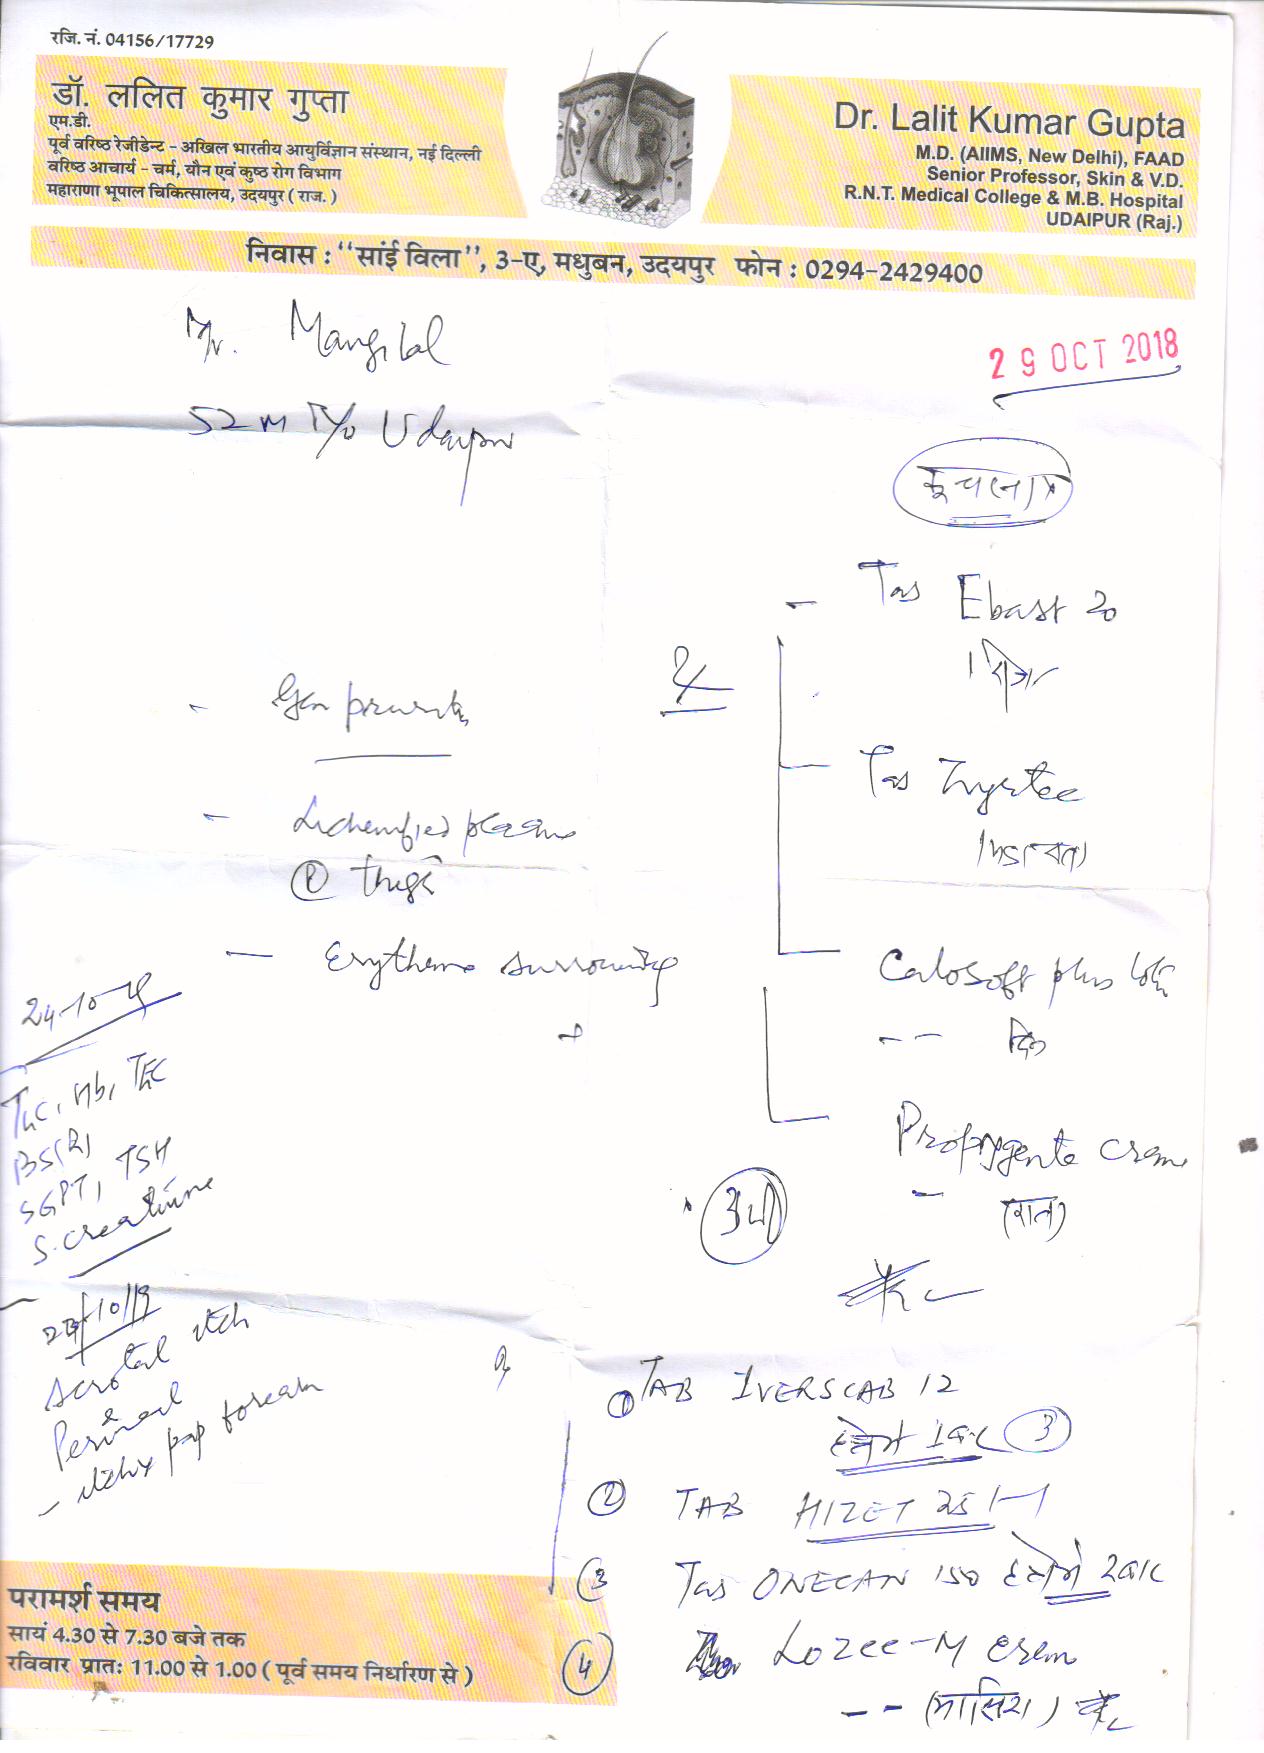 रजि. नं. 04156/17729
डॉ. ललित कुमार गुप्ता
एम.डी.
पूर्व वरिष्ठ रेजीडेन्ट - अखिल भारतीय आयुर्विज्ञान संस्थान, नई दिल्ली
वरिष्ठ आचार्य - चर्म, यौन एवं कुष्ठ रोग विभाग
महाराणा भूपाल चिकित्सालय, उदयपुर ( राज. )
Dr. Lalit Kumar Gupta
M.D. (AIIMS, New Delhi), FAAD
Senior Professor, Skin & V.D.
R.N.T. Medical College & M.B. Hospital
UDAIPUR (Raj.)
निवास : ‘‘सांई विला’’, 3-ए, मधुबन, उदयपुर फोन : 0294-2429400
Mr. Mangilal
29 OCT 2018
52 M R/o Udaipur
- Tab Ebast 20
1 रोज
- Gen pruritus
- Tab Zyrtec
- Lichenified plaque
(R) thigh
- Erythema surrounding
+
Calosoft plus
-- दिन
Propygenta cream
- (रात)
24-10-19
TLC, Hb,
BS(R)
SGPT, TSH
S. creatinine
/10/19
Scrotal itch
&
Perineal
- itchy pap forearm
① TAB IVERSCAB 12
हफ्ते में 1 बार ③
② TAB HIZET 25
③ Tab ONECAN 150 हफ्ते में 2 बार
④ Lozee-M cream
-- (मालिश)
परामर्श समय
सायं 4.30 से 7.30 बजे तक
रविवार प्रातः 11.00 से 1.00 ( पूर्व समय निर्धारण से )